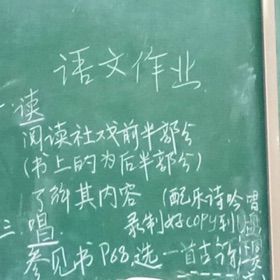 语文作业
一.读
阅读社戏前半部分
(书上的为后半部分)
了解其内容 (配乐诗吟唱
三.唱 录制好copy到
参见书P68,选一首古诗